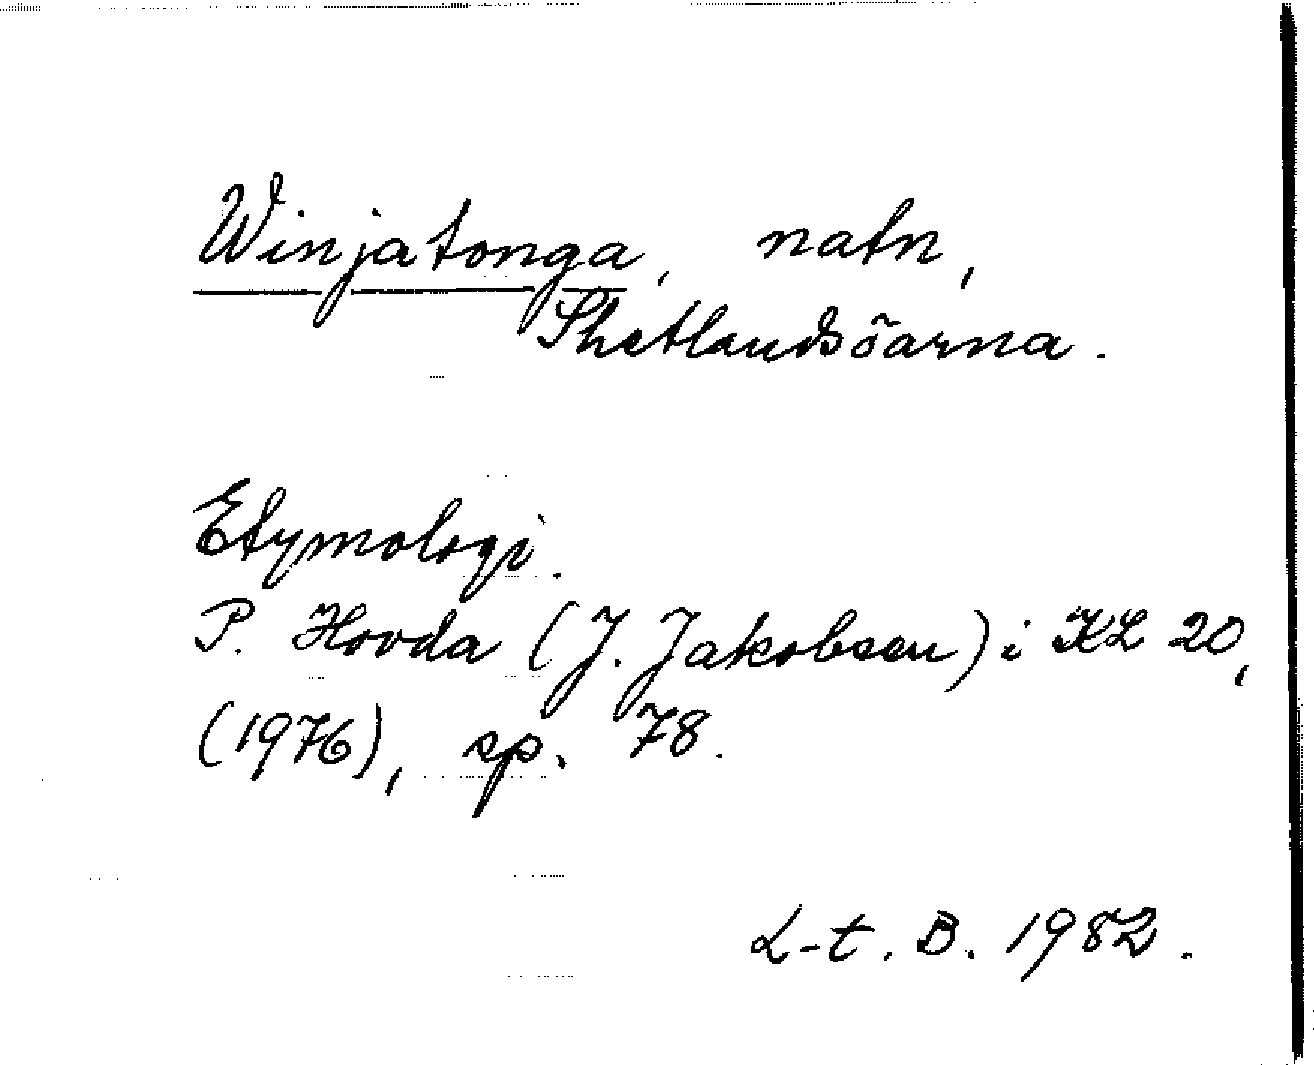 Winjatonga, natn,
Shetlandsöarna.
Etymologi.
P. Hovda (J. Jakobsen) i KL 20,
(1976), sp. 78.
L-t. B. 1982.